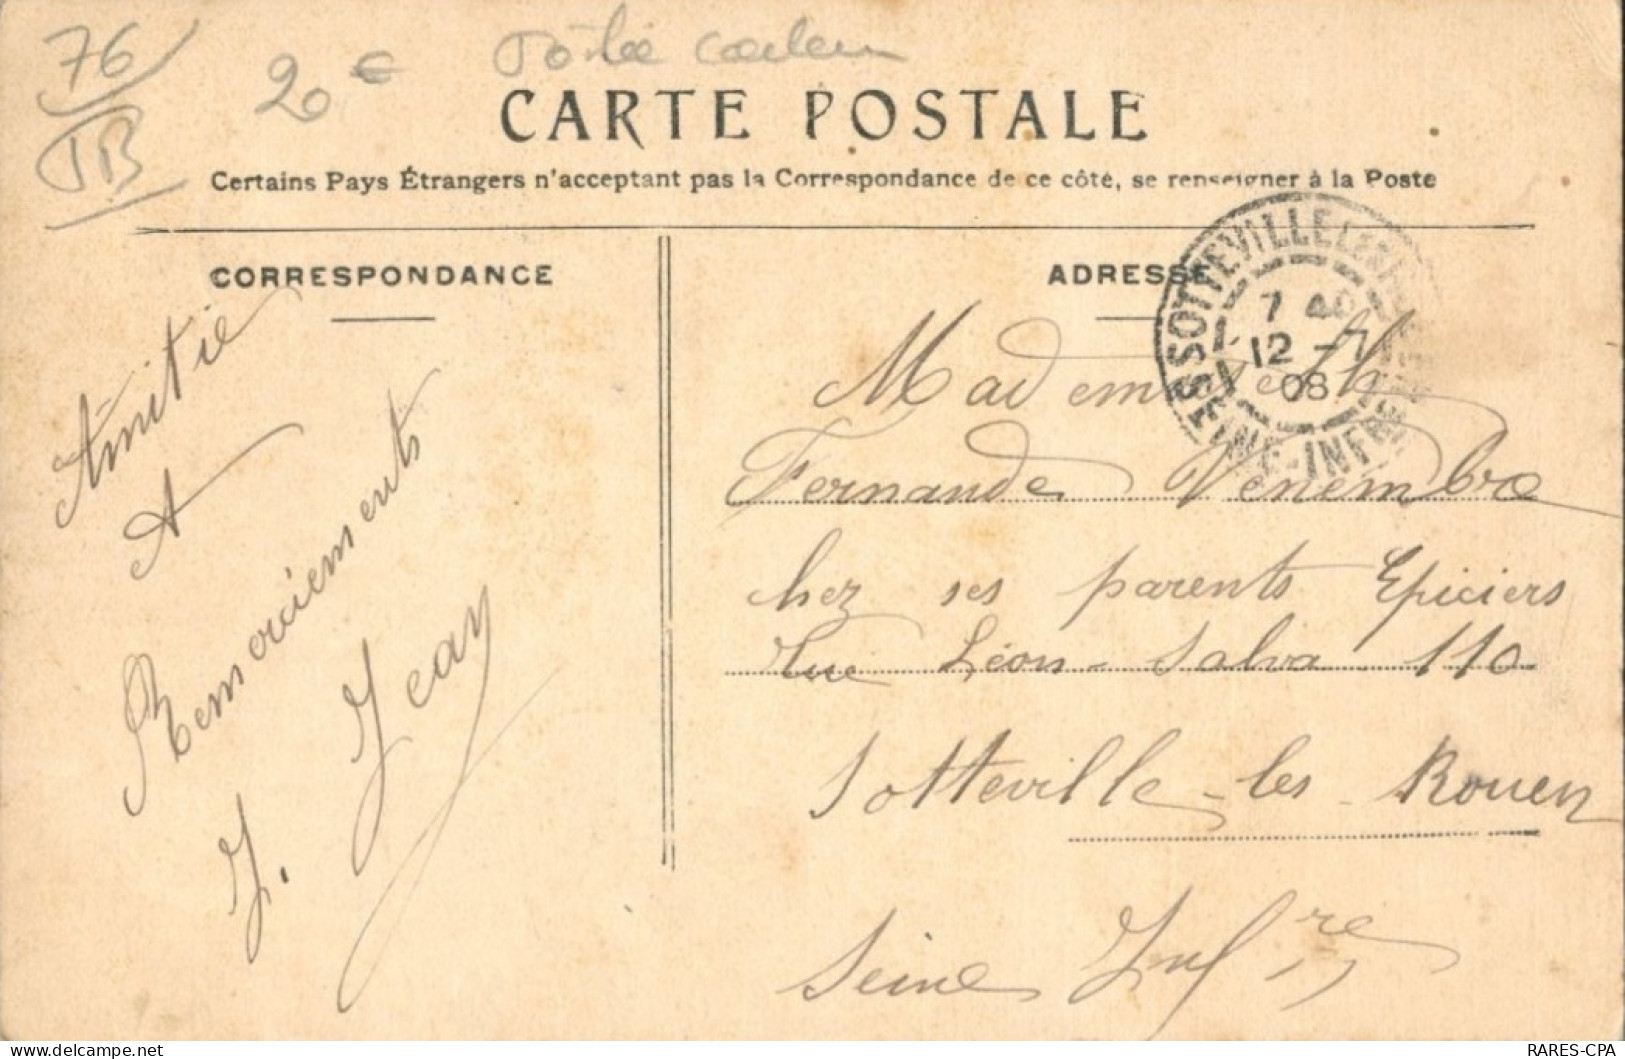 76
TB
2 €
CARTE POSTALE
Certains Pays Étrangers n'acceptant pas la Correspondance de ce côté, se renseigner à la Poste
CORRESPONDANCE
Amitié
et
Remerciements
J. Jean
ADRESSE
SOTTEVILLE LES
7
12 -7
08
SEINE-INFRE
Mademoiselle
Fernande Venembre
chez ses parents Epiciers
rue Léon Salva 110
Sotteville-les-Rouen
Seine Infre
RARES-CPA